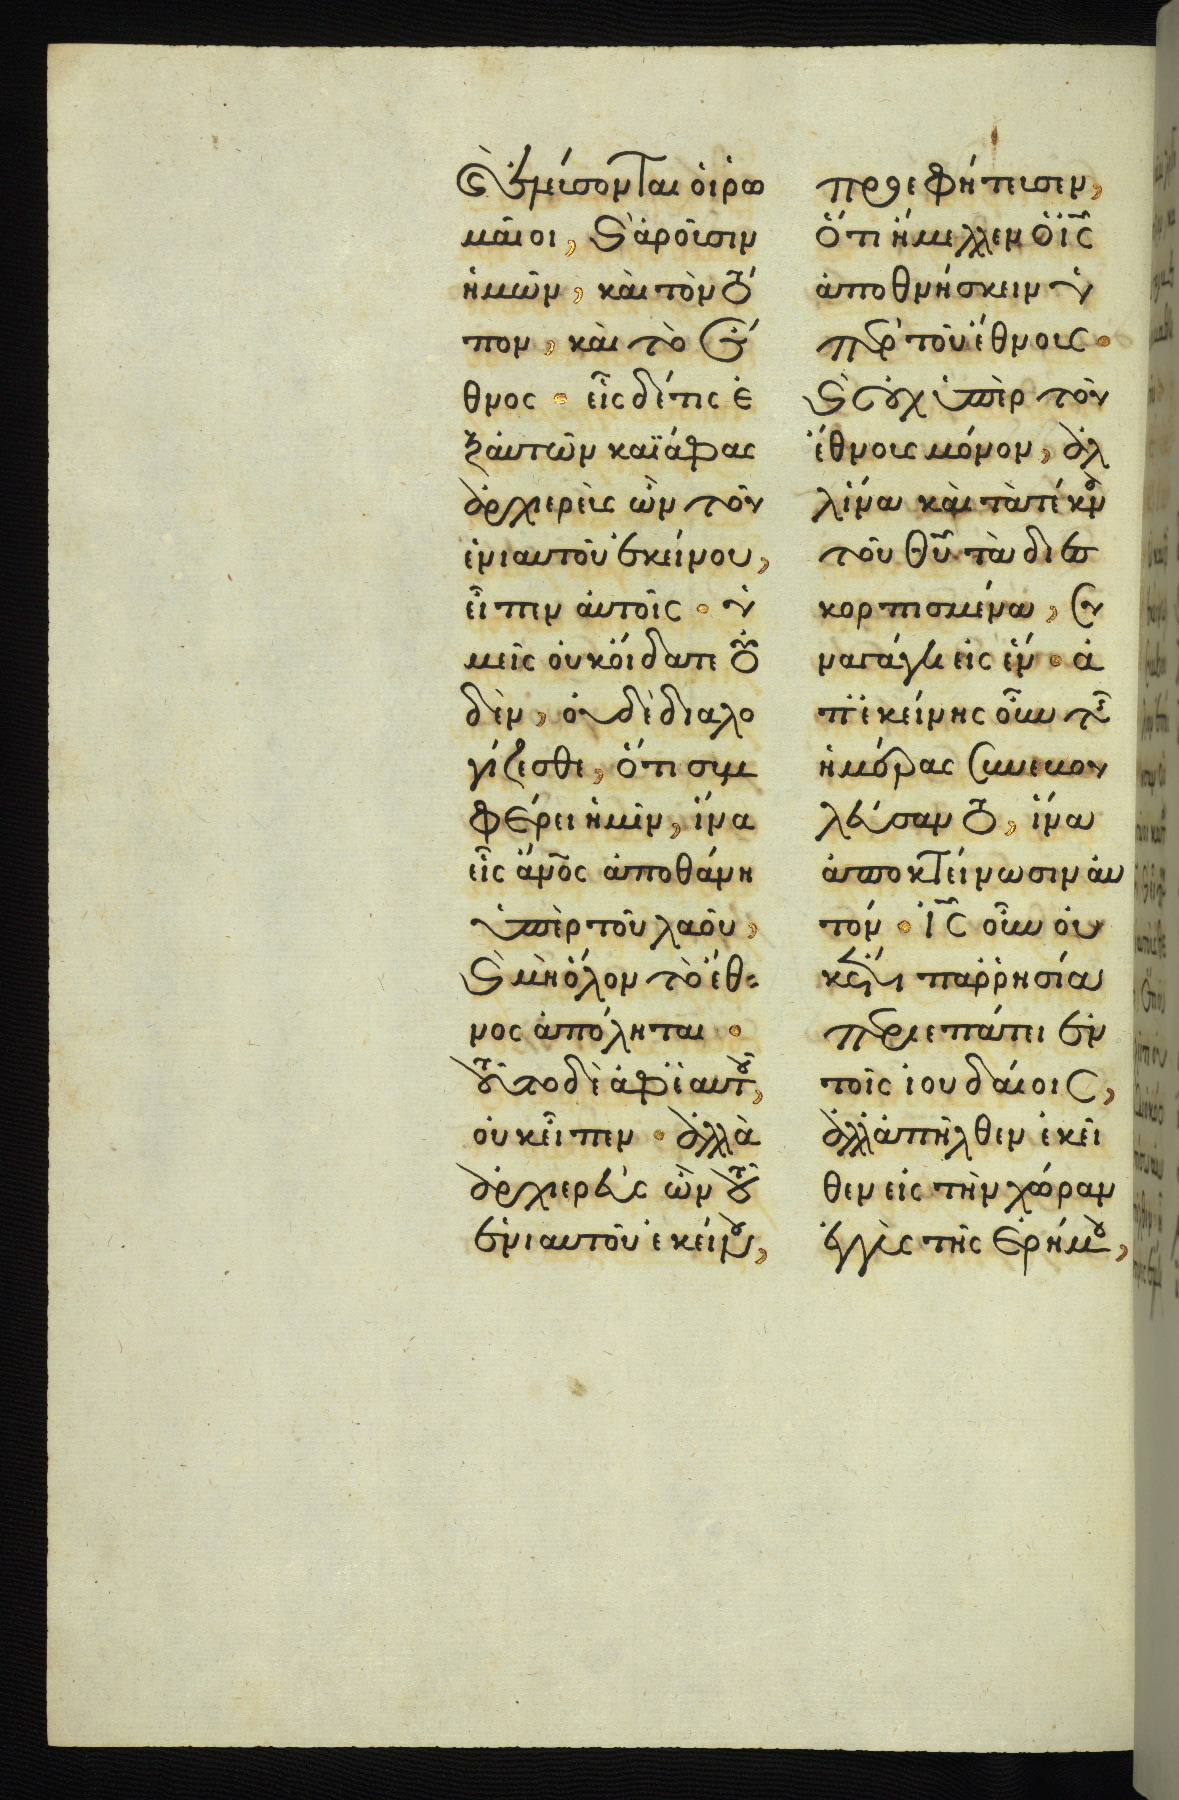 ἐλεύσονται οἱ ρω
μαῖοι, ϗ ἀροῦσιν
ἡμῶν, καὶ τὸν τό
πον, καὶ τὸ ἔ
θνος· εἷς δέ τις ἐ
ξ αὐτῶν καϊάφας
ἀρχιερεὺς ὢν τοῦ
ἐνιαυτοῦ ἐκείνου,
εἶπεν αὐτοῖς· ὑ
μεῖς οὐκ οἴδατε οὐ
δὲν, οὐδὲ διαλο
γίζεσθε, ὅτι συμ
φέρει ἡμῖν, ἵνα
εἷς ἄνος ἀποθάνη
ὑπὲρ τοῦ λαοῦ,
ϗ μὴ ὅλον τὸ ἔθ
νος ἀπόληται·
τοῦτο δὲ ἀφ' ἑαυτοῦ,
οὐκ εἶπεν· ἀλλὰ
ἀρχιερεὺς ὢν τοῦ
ἐνιαυτοῦ ἐκείνου,
προεφήτευσεν,
ὅτι ἤμελλεν ὁ ις
ἀποθνήσκειν ὑ
πὲρ τοῦ ἔθνους·
ϗ οὐχ ὑπὲρ τοῦ
ἔθνους μόνον, ἀλ
λ' ἵνα καὶ τὰ τέκνα
τοῦ θυ τὰ διε
σκορπισμένα, συ
ναγάγη εἰς ἕν· ἀ
π' ἐκείνης οὖν τῆς
ἡμέρας συνεβου
λεύσαντο, ἵνα
ἀποκτείνωσιν αὐ
τόν· ις οὖν οὐ
κέτι παρρησία
περιεπάτει ἐν
τοῖς ἰουδαίοις,
ἀλλὰ ἀπῆλθεν ἐκεῖ
θεν εἰς τὴν χώραν
ἐγγὺς τῆς ἐρήμου,